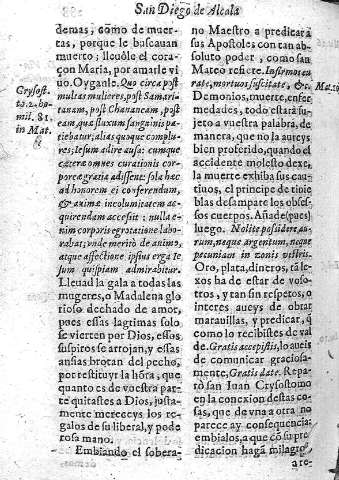 San Diego de Alcala
demas, cõmo de muer-
tas, porque le buscauan
muerto; lleuòle el cora-
çon Maria, por amarle vi
uo. Oyganle. Quo circa post
multas mulieres, post Samari-
tanam, post Chananeam, post
eam, quæ fluxum sanguinis pa-
tiebatur; alias quoque complu-
res; Iesum adire ausa: cumque
cæteræ omnes curationis cor-
poreæ gratia adissent: sola hæc
ad honorem ei conferendum,
& animæ incolumitatem ac-
quirendam accessit: nulla e-
nim corporis egrotatione labo-
rabat; vnde meritò de animo,
atque affectione ipsius erga Ie-
sum quispiam admirabitur.
Lleuad la gala a todas las
mugeres, o Madalena glo
rioso dechado de amor,
pues essas lagrimas solo
se vierten por Dios, essos
suspiros se arrojan, y essas
ansias brotan del pecho,
por restituyr la hõra, que
quanto es de vuestra par-
te quitastes a Dios, justa-
mente mereceys los re-
galos de su liberal, y pode
rosa mano.
Embiando el sobera-
Crysost.
to. 2. ho-
mil. 81.
in Mat.
no Maestro a predicar a
sus Apostoles con tan ab-
soluto poder, como san
Mateo refiere. Infirmos cu
rate, mortuos suscitate, &c.
Demonios, muerte, enfer
medades, todo estarà su-
jeto a vuestra palabra, de
manera, que no la aueys
bien proferido, quando el
accidente molesto dexe,
la muerte exhiba sus cau-
tiuos, el principe de tinie
blas desampare los obses-
sos cuerpos. Añade (pues)
luego. Nolite possidere au-
rum, neque argentum, neque
pecuniam in zonis vestris.
Oro, plata, dineros, tã le-
xos ha de estar de voso-
tros, y tan sin respetos, o
interes aueys de obrar
marauillas, y predicar, q̃
como lo recibistes de val
de. Gratis accepistis, lo aueis
de comunicar graciosa-
mente, Gratis date. Repa-
rò san Iuan Crysostomo
en la conexion destas co-
sas, que de vna a otra no
parece ay consequencia:
embialos, a que cõ su pre
dicacion hagã milagros
Mat. 10
a re-